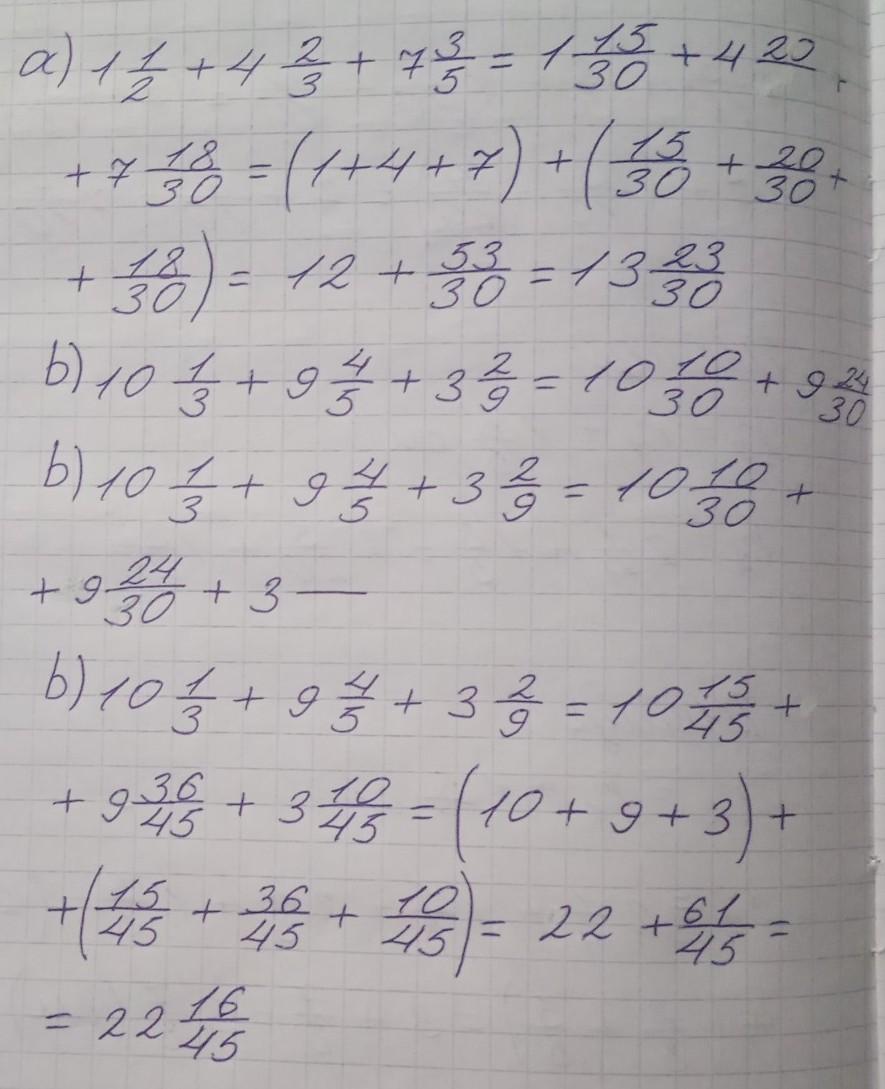 a) 1 1/2 + 4 2/3 + 7 3/5 = 1 15/30 + 4 20/
+ 7 18/30 = (1+4+7) + (15/30 + 20/30 +
+ 18/30) = 12 + 53/30 = 13 23/30
b) 10 1/3 + 9 4/5 + 3 2/9 = 10 10/30 + 9 24/30
b) 10 1/3 + 9 4/5 + 3 2/9 = 10 10/30 +
+ 9 24/30 + 3 —
b) 10 1/3 + 9 4/5 + 3 2/9 = 10 15/45 +
+ 9 36/45 + 3 10/45 = (10 + 9 + 3) +
+ (15/45 + 36/45 + 10/45) = 22 + 61/45 =
= 22 16/45